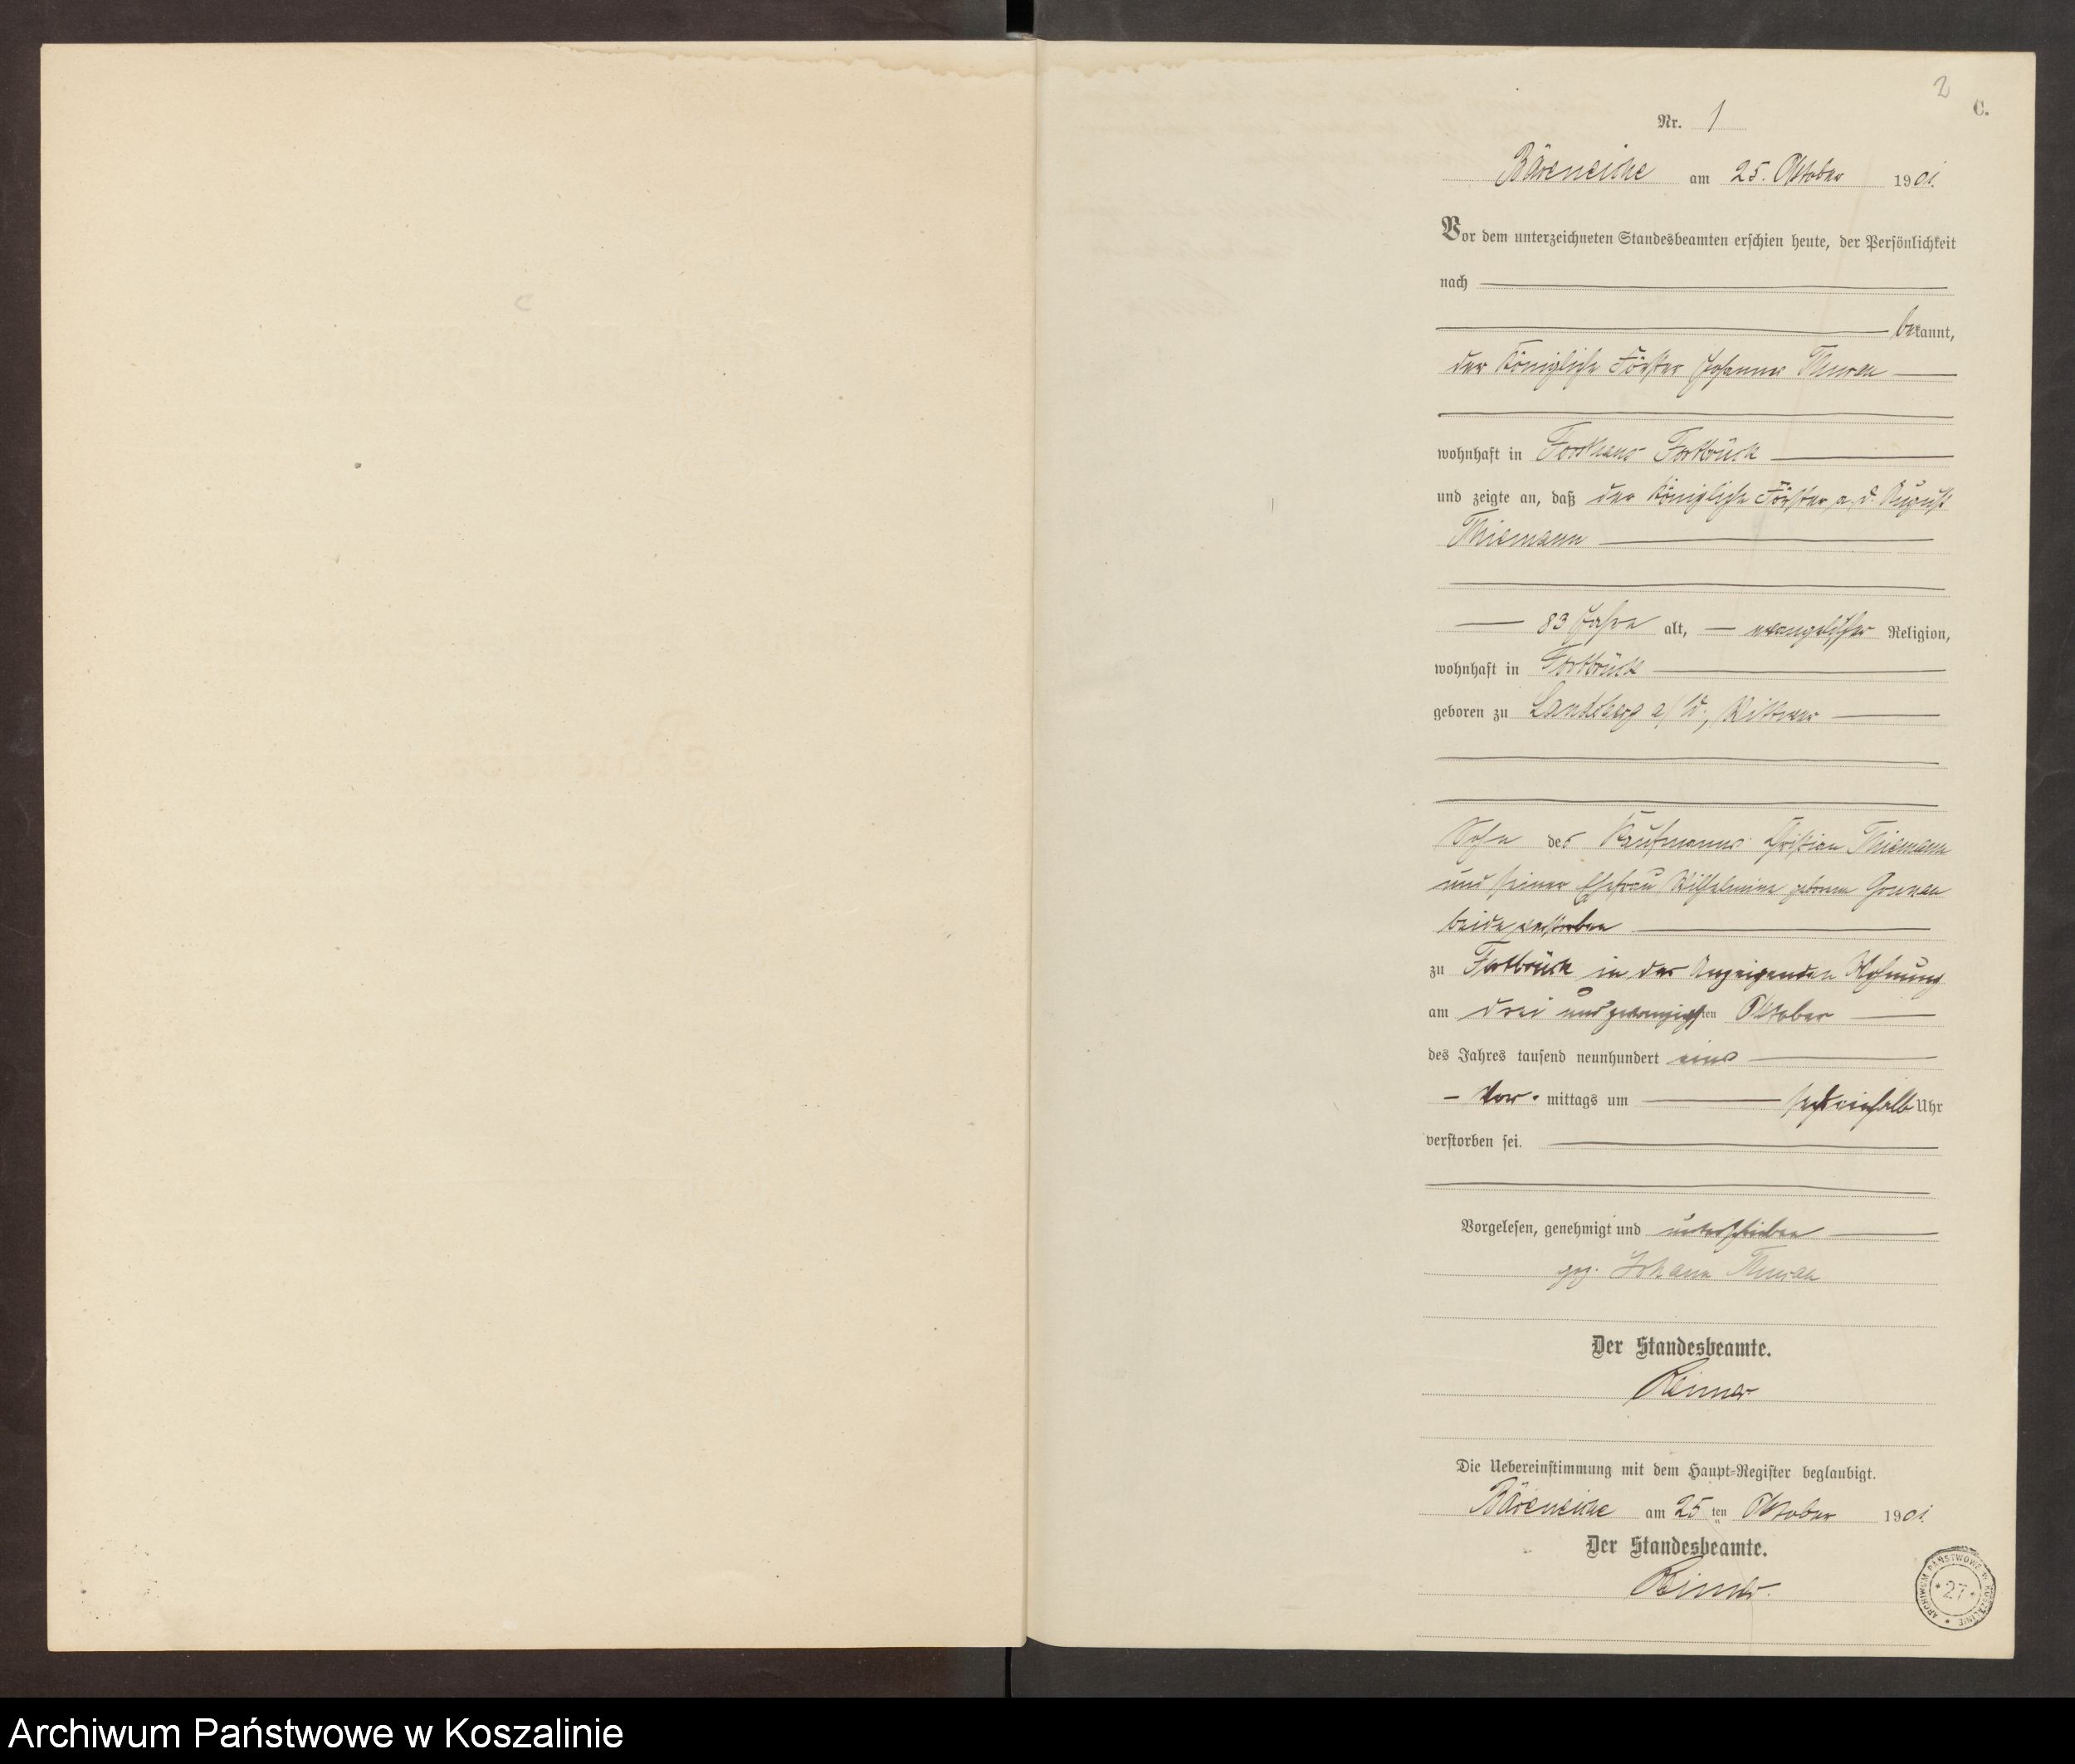 2
C.
Nr. 1
Bäreneiche am 25. Oktober 1901.
Vor dem unterzeichneten Standesbeamten erschien heute, der Persönlichkeit
nach
bekannt,
der Königliche Förster Johannes
wohnhaft in Forsthaus Fortbrück
und zeigte an, daß der Königliche Förster a. D. August
Thiemann
83 Jahre alt, evangelischer Religion,
wohnhaft in Fortbrück
geboren zu Landsberg a/W., Wittwer
Sohn des Kaufmanns Christian Thiemann
und seiner Ehefrau Wilhelmine geborene
beide verstorben
zu Fortbrück in des Anzeigenden Wohnung
am drei und zwanzigsten Oktober
des Jahres tausend neunhundert eins
Vor mittags um Uhr
verstorben sei.
Vorgelesen, genehmigt und unterschrieben
gez. Johann
Der Standesbeamte.
Die Uebereinstimmung mit dem Haupt-Register beglaubigt.
Bäreneiche am 25 ten Oktober 1901.
Der Standesbeamte.
ARCHIWUM PAŃSTWOWE W KOSZALINIE
* 27 *
Archiwum Państwowe w Koszalinie